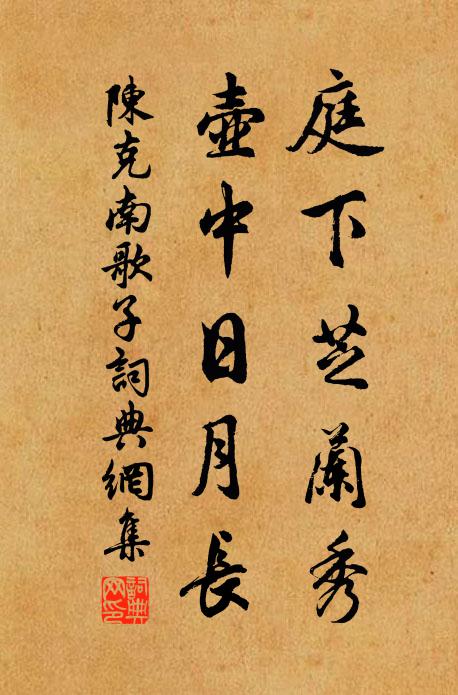 庭下芝蘭秀
壺中日月長
陳克南歌子詞典網集
詞典網印